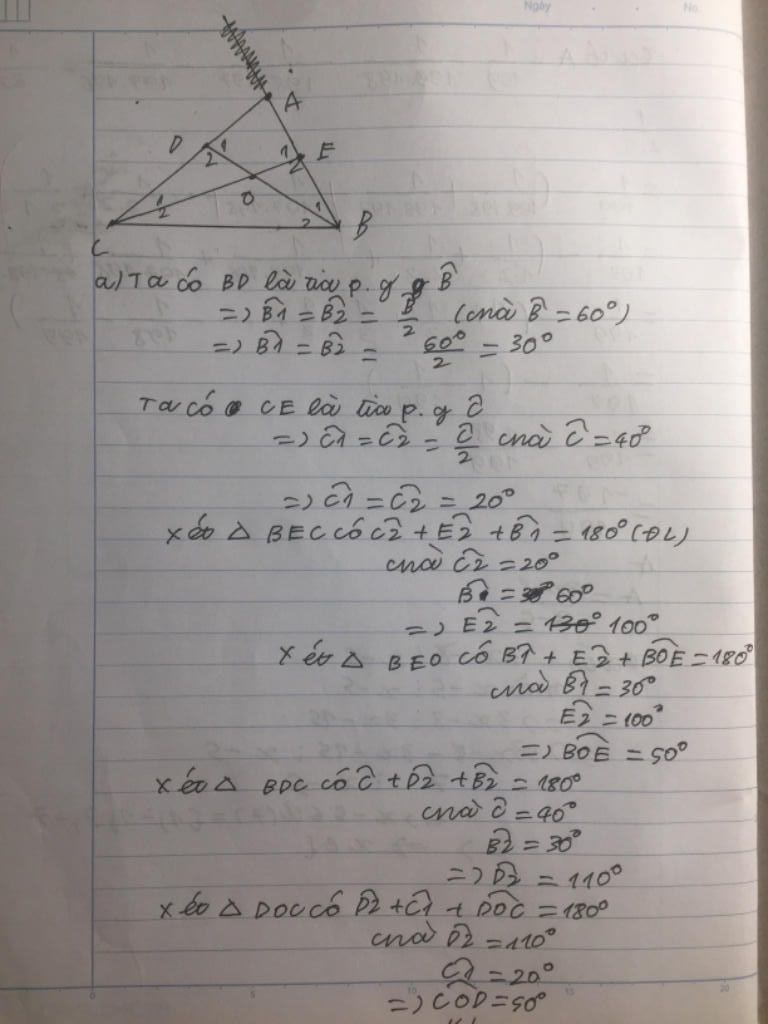 Ngày
No.
A
D
1
2
1
2
E
O
1
2
1
2
C
B
a) Ta có BD là tia p. g g B̂
=> B̂1 = B̂2 = B̂/2 (mà B̂ = 60°)
=> B̂1 = B̂2 = 60°/2 = 30°
Ta có CE là tia p. g Ĉ
=> Ĉ1 = Ĉ2 = Ĉ/2 mà Ĉ = 40°
=> Ĉ1 = Ĉ2 = 20°
Xét △ BEC có Ĉ2 + Ê2 + B̂1 = 180° (ĐL)
mà Ĉ2 = 20°
B̂ = 60°
=> Ê2 = 130° 100°
Xét △ BEO có B̂1 + Ê2 + BÔE = 180°
mà B̂1 = 30°
Ê2 = 100°
=> BÔE = 50°
Xét △ BDC có Ĉ + D̂2 + B̂2 = 180°
mà Ĉ = 40°
B̂2 = 30°
=> D̂2 = 110°
Xét △ DOC có D̂2 + Ĉ1 + DÔC = 180°
mà D̂2 = 110°
Ĉ1 = 20°
=> CÔD = 50°
0 5 10 15 20